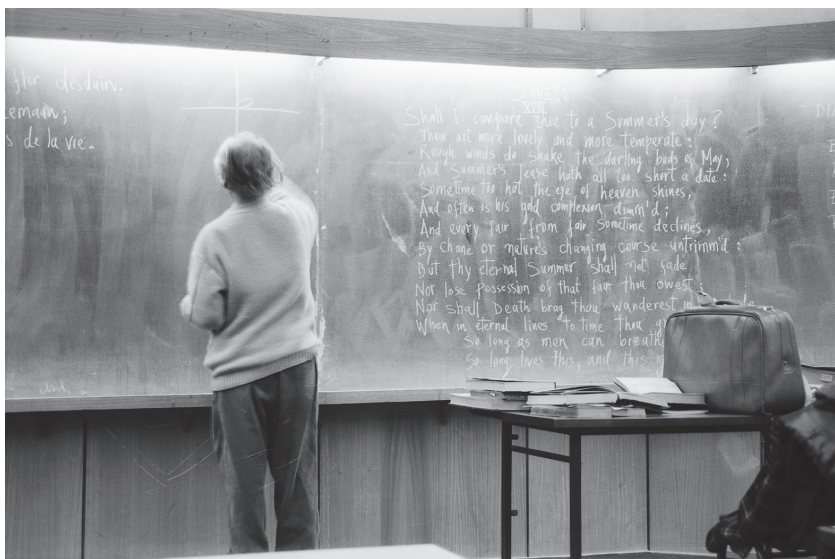 fier desdain.
emain;
s de la vie.
SONNETS
XVIII
Shall I compare thee to a Summer's day?
Thou art more lovely and more temperate:
Rough winds do shake the darling buds of May,
And Summer's lease hath all too short a date:
Sometime too hot the eye of heaven shines,
And often is his gold complexion dimm'd;
And every fair from fair sometime declines,
By chance or nature's changing course untrimm'd:
But thy eternal Summer shall not fade
Nor lose possession of that fair thou owest
Nor shall Death brag thou wanderest
When in eternal lines to time thou
So long as men can breath
So long lives this, and this